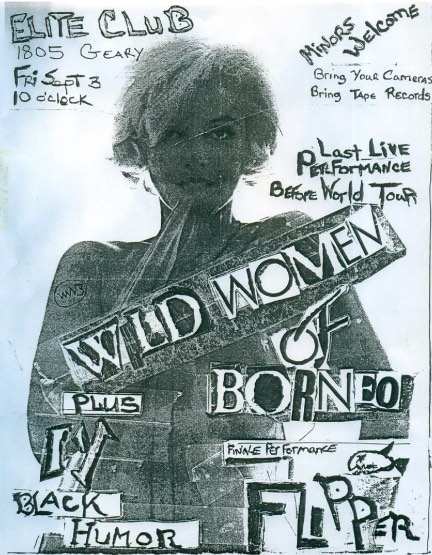 ELITE CLUB
1805 GEARY
Fri Sept 3
10 o'clock
MiNORS
WeLCOMe
Bring Your Cameras
Bring Tape Records
Last Live
PerFormance
BeFore World Tour
WILD WOMEN
OF
BORNEO
PLUS
BLACK
HUMOR
FiNALe PerFormance
FLiPPER